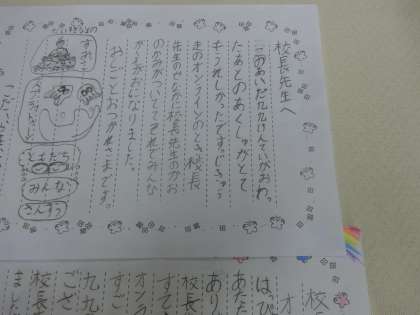 校長先生へ
このあいだ九九けんていがおわっ
たあとのあくしゅがとて
もうれしかったですじきゅう
走のオンラインのとき校長
先生のせなかに校長先生のかお
のかみがついててそれでみんな
がえがおになりました。
おしごとおつかれさまです。
ともだち
みんな
さんすう
校
オ
はっぴ
あなた
あり
校長
すて
オン
すご
九九
ござ
校長
ました